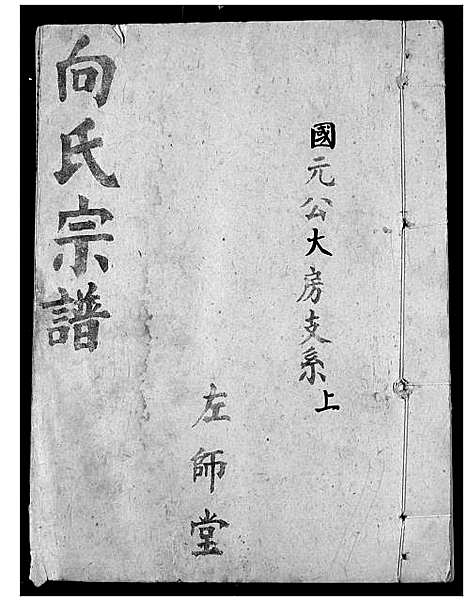 國元公大房支系上
左師堂
向氏宗譜